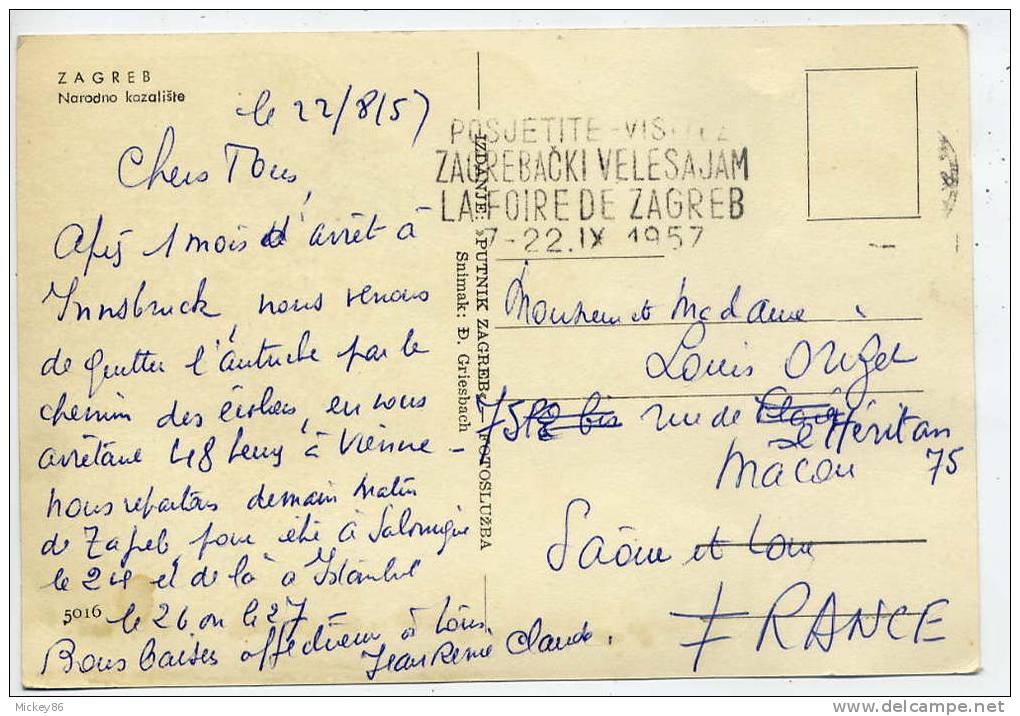 ZAGREB
Narodno kazalište
le 22/8/57
Chers Tous,
Après 1 mois d'arrêt à
Innsbruck, nous venons
de quitter l'Autriche par le
chemin des écoliers, en nous
arrêtant 48 heures à Vienne -
nous repartons demain matin
de Zagreb, pour être à Salonique
le 24 et de là à Istanbul
le 26 ou le 27
5016
Bons baisers affectueux à tous.
Jean René Claude.
IZDANJE: »PUTNIK ZAGREB« FOTOSLUŽBA
Snimak: Đ. Griesbach
POSJETITE - VISITEZ
ZAGREBAČKI VELESAJAM
LA FOIRE DE ZAGREB
7-22.IX 1957
Monsieur et Madame
Louis
75 bis rue de
le Héritan
Macon 75
Saône et Loire
FRANCE
Mickey86